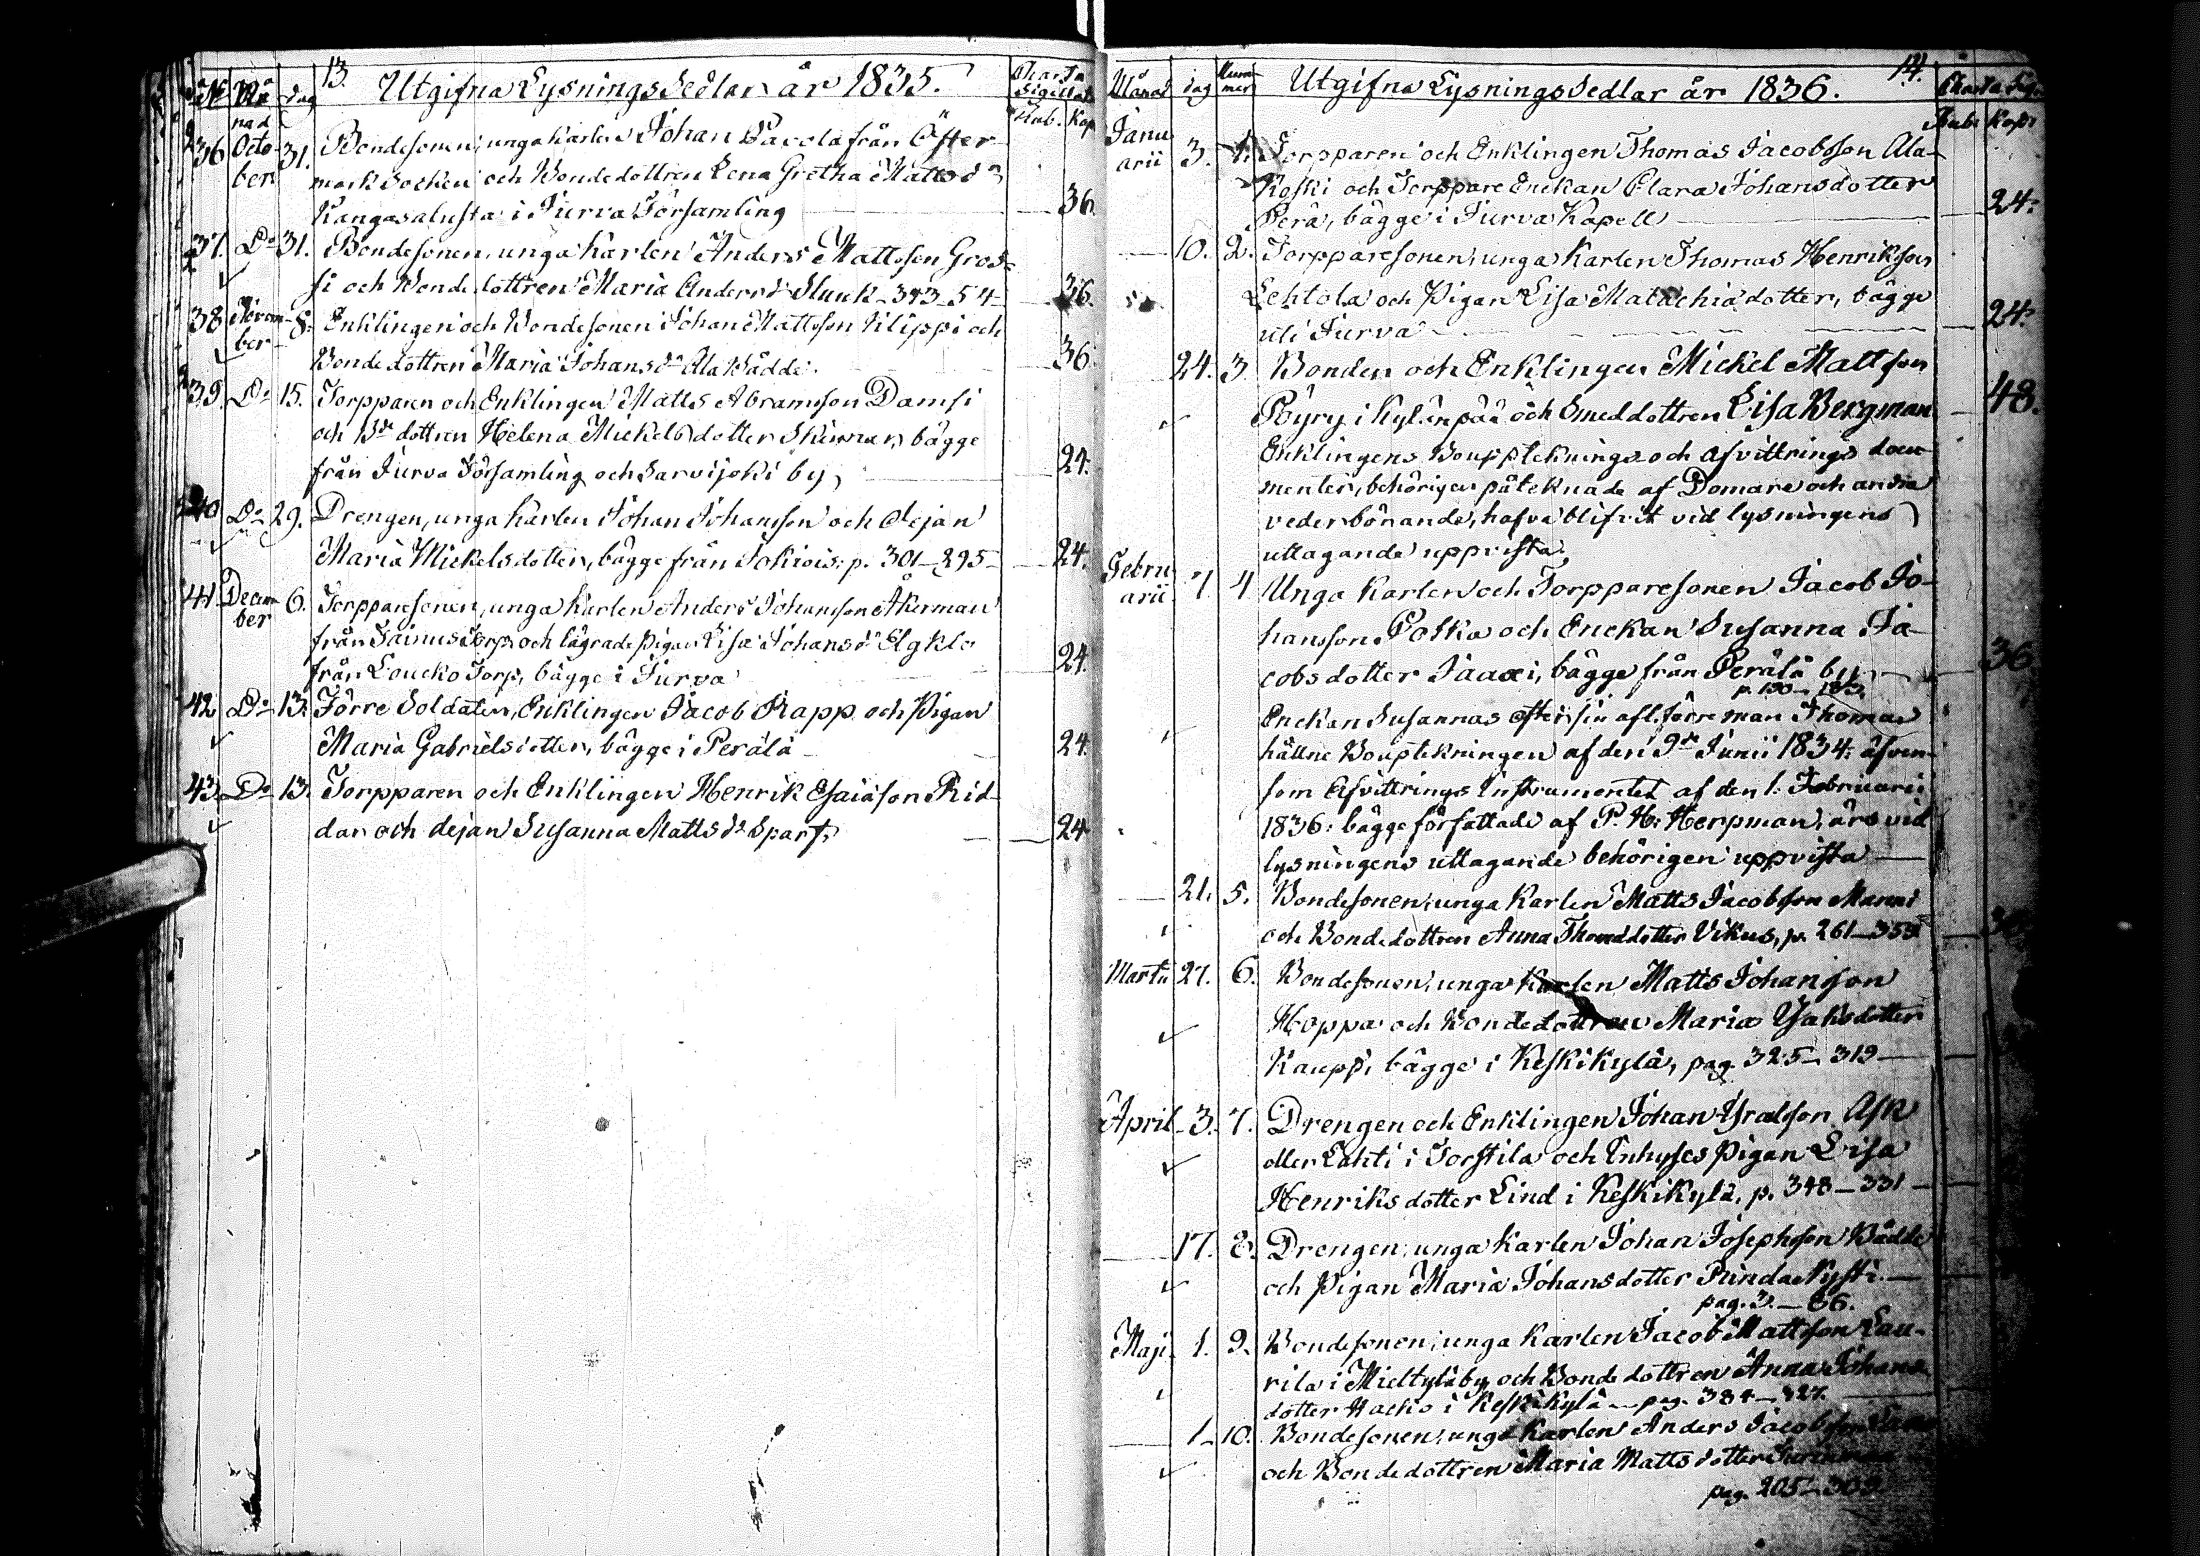 13.
No Må nad dag Utgifna Lysnings Sedlar år 1835. Charta Sigillat.
Rub. Kop.
36 Octo ber 31. Bondesonen, unga karlen Johan Pacola från Öster-
mark socken och Bondedottren Lena Gretha Mattsdr
Kangasalusta i Jurva Församling 36.
37. Do 31. Bondesonen, unga karlen Anders Mattsson Gros-
si och Bondedottren Maria Andersdr Sluuk 343-54- 36.
38 Novem ber 8. Enklingen och Bondesonen Johan Mattsson Filippi och
Bondedottren Maria Johansdr Ala Bådde. 36.
39. Do 15. Torpparen och Enklingen Matts Abramsson Damsi
och Bde dottren Helena Mickelsdotter Skinnar, bägge
från Jurva Församling och Sarvijoki by, 24.
40 Do 29. Drengen, unga karlen Johan Johansson och dejan
Maria Mickelsdotter, bägge från Jokiois: p. 301-295- 24.
41. Decem ber 6. Torpparesonen, unga karlen Anders Johansson Åkerman
från Torp och lägrade pigan Lisa Johansdr
från Loucko Torp, bägge i Jurva 24.
42 Do 13. Förre Soldaten, Enklingen Jacob Rapp och Pigan
Maria Gabrielsdotter, bägge i Perälä 24.
43. Do 13. Torpparen och Enklingen Henrik Esaiasson Rid-
dar och dejan Susanna Mattsdr Sparf, 24
14.
Månad dag Num mer Utgifna Lysnings Sedlar år 1836. Charta Sig.
Rub. Kop.
Janu arii 3. 1. Torpparen och Enklingen Thomas Jacobsson Ala-
Koski och Torppare Enckan Clara Johansdotter
Perä, bägge i Jurva Kapell 24.
10. 2. Torpparesonen, unga Karlen Thomas Henriksson
Lehtola och Pigan Lisa Matachiadotter, bägge
uti Jurva 24.
24. 3. Bonden och Enklingen Mickel Mattsson
Pöyry i Kylänpää och Smeddottren Lisa Bergman 48.
Enklingens Bouppteknings och afvittrings docu-
menter, behörigen påteknade af Domare och andra
vederbörande, hafva blifvit vid lysningens
uttagande uppvista.
Febru arii 7. 4 Unga Karlen och Torpparesonen Jacob Jo-
hansson Potka och Enckan Susanna Ja-
cobsdotter Jaaxi, bägge från Perälä by 36
p. 190-
Enckan Susannas efter sin afl. förre man Thomas
hållne Bouptekningen af den 9de Junii 1834: äfven-
som Afvittrings Instrumentet af den 1. Februarii
1836: bägge författade af P. H: Herpman, äro vid
lysningens uttagande behörigen uppvista
21. 5. Bondesonen, unga Karlen Matts Jacobsson Manni
och Bondedottren Anna Thomasdotter Vikus, p. 261-353
Martii 27. 6. Bondesonen, unga Karlen Matts Johansson
Hoppa och Bondedottren Maria Isaksdotter
Kauppi, bägge i Keskikylä, pag. 325-319
April 3. 7. Drengen och Enklingen Johan Israelsson Ask
eller Lahti i Torstila och Inhyses pigan Lisa
Henriksdotter Lind i Keskikylä, p. 348-331
17. 8. Drengen, unga karlen Johan Josephsson Bådde
och Pigan Maria Johansdotter Rinda Nysti.
pag. 3.-86.
Maji 1. 9. Bondesonen, unga Karlen Jacob Mattsson Lau-
rila i Mieltylä by och Bondedottren Anna Johans-
dotter Hacko i Keskikylä pag. 384-327.
1. 10. Bondesonen, unga Karlen Anders Jacobsson
och Bondedottren Maria Mattsdotter
pag. 205-309